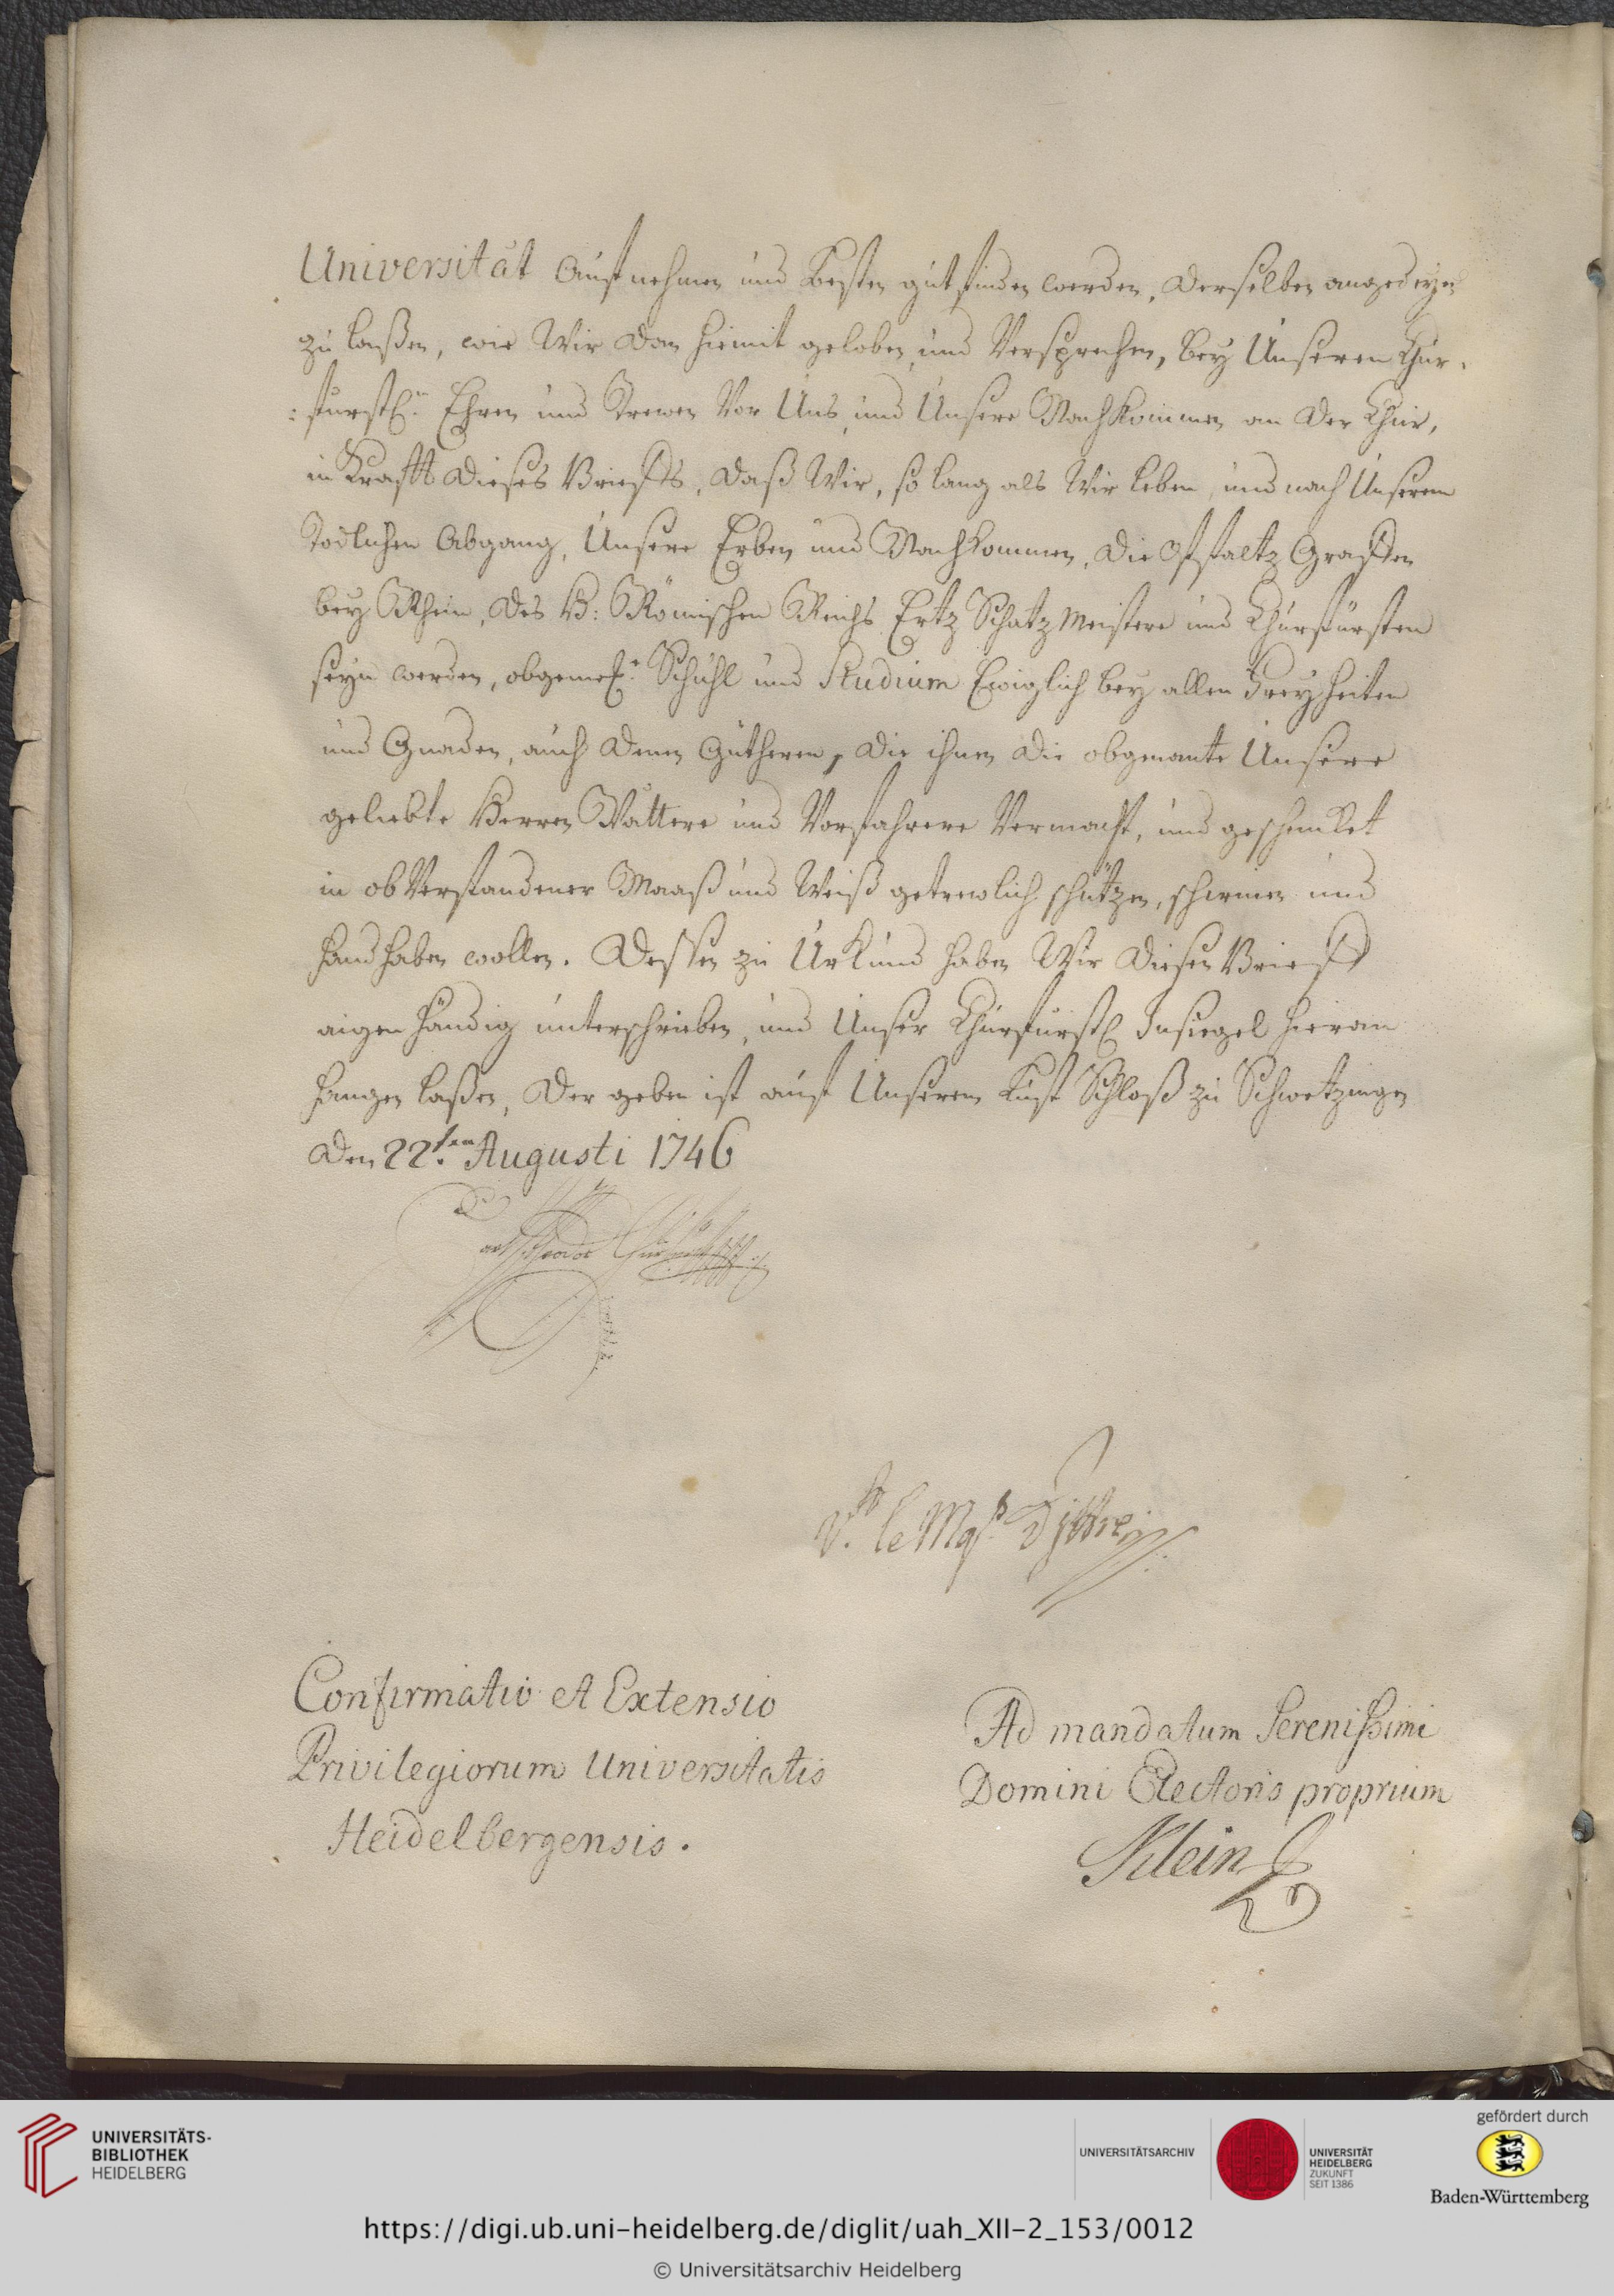 Universität Aufnehmen und Besten gut finden werden, derselben angedeyen
zu laßen, wie Wir dan hiemit geloben, und Versprechen, bey Unseren Chur-
:fürstl:n Ehren und Trewen Vor Uns, und Unsere Nachkommen an der Chur,
in Krafft dieses Brieffs, daß Wir, so lang als Wir leben, und nach Unserem
Todlichen Abgang, Unsere Erben und Nachkommen, die Pfaltz Graffen
bey Rhein, des H: Römischen Reichs Ertz Schatz Meistere und Churfürsten
seyn werden, obgemel:r Schuhl und Studium Ewiglich bey allen Freyheiten
und Gnaden, auch denen Gütheren, die ihnen die obgenante Unsere
geliebte Herren Vättere und Vorfahrere Vermacht, und geschencket
in ob Verstandener Maaß und Weiß getrewlich schützen, schirmen und
handhaben wollen. Dessen zu Urkund haben Wir diesen Brieff
aigenhändig unterschrieben, und Unser Churfürstl Insiegel hieran
hangen laßen, Der geben ist auf Unserem Lust Schloß zu Schwetzingen
den 22.ten Augusti 1746
Carl Theodor Churfürst
Vt. le Mqs. D'Ittre
Confirmatio et Extensio
Privilegiorum Universitatis
Heidelbergensis.
Ad mandatum Serenissimi
Domini Electoris proprium
Klein
UNIVERSITÄTS-
BIBLIOTHEK
HEIDELBERG
UNIVERSITÄTSARCHIV
UNIVERSITÄT
HEIDELBERG
ZUKUNFT
SEIT 1386
gefördert durch
Baden-Württemberg
https://digi.ub.uni-heidelberg.de/diglit/uah_XII-2_153/0012
© Universitätsarchiv Heidelberg